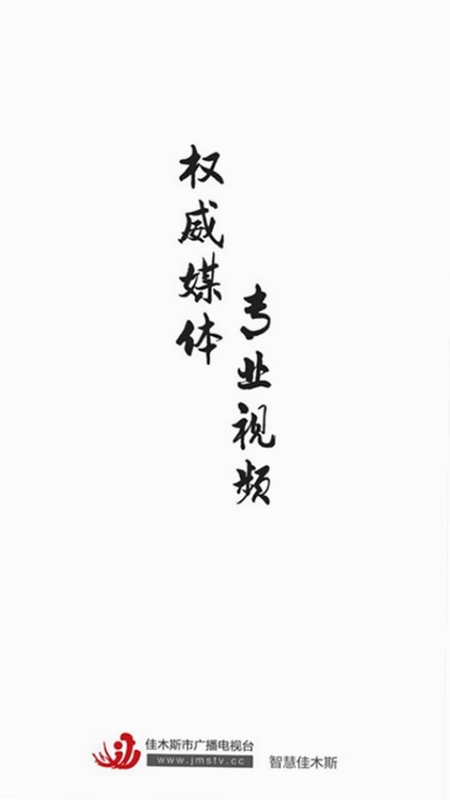 权威媒体
专业视频
佳木斯市广播电视台
www.jmstv.cc
智慧佳木斯